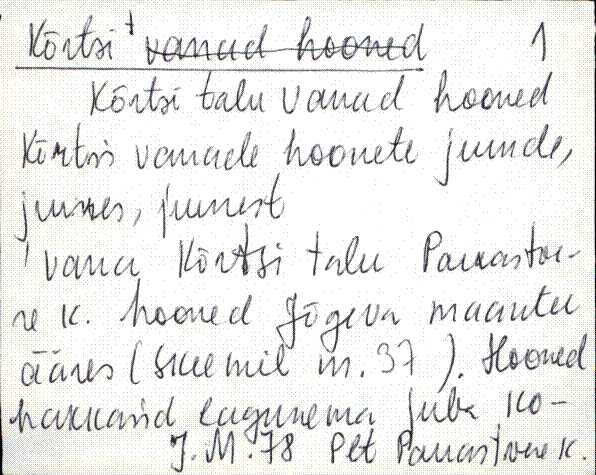 Kõrtsi ' vanad hooned 1
Kõrtsi talu vanad hooned
Kõrtsi vanade hoonete juurde,
juures, juurest
' vana Kõrtsi talu Pauastve-
re k. hooned Jõgeva maantee
ääres (skeemil nr. 37). Hooned
hakkasid lagunema juba ko-
J. M. 78 Plt Pauastvere k.